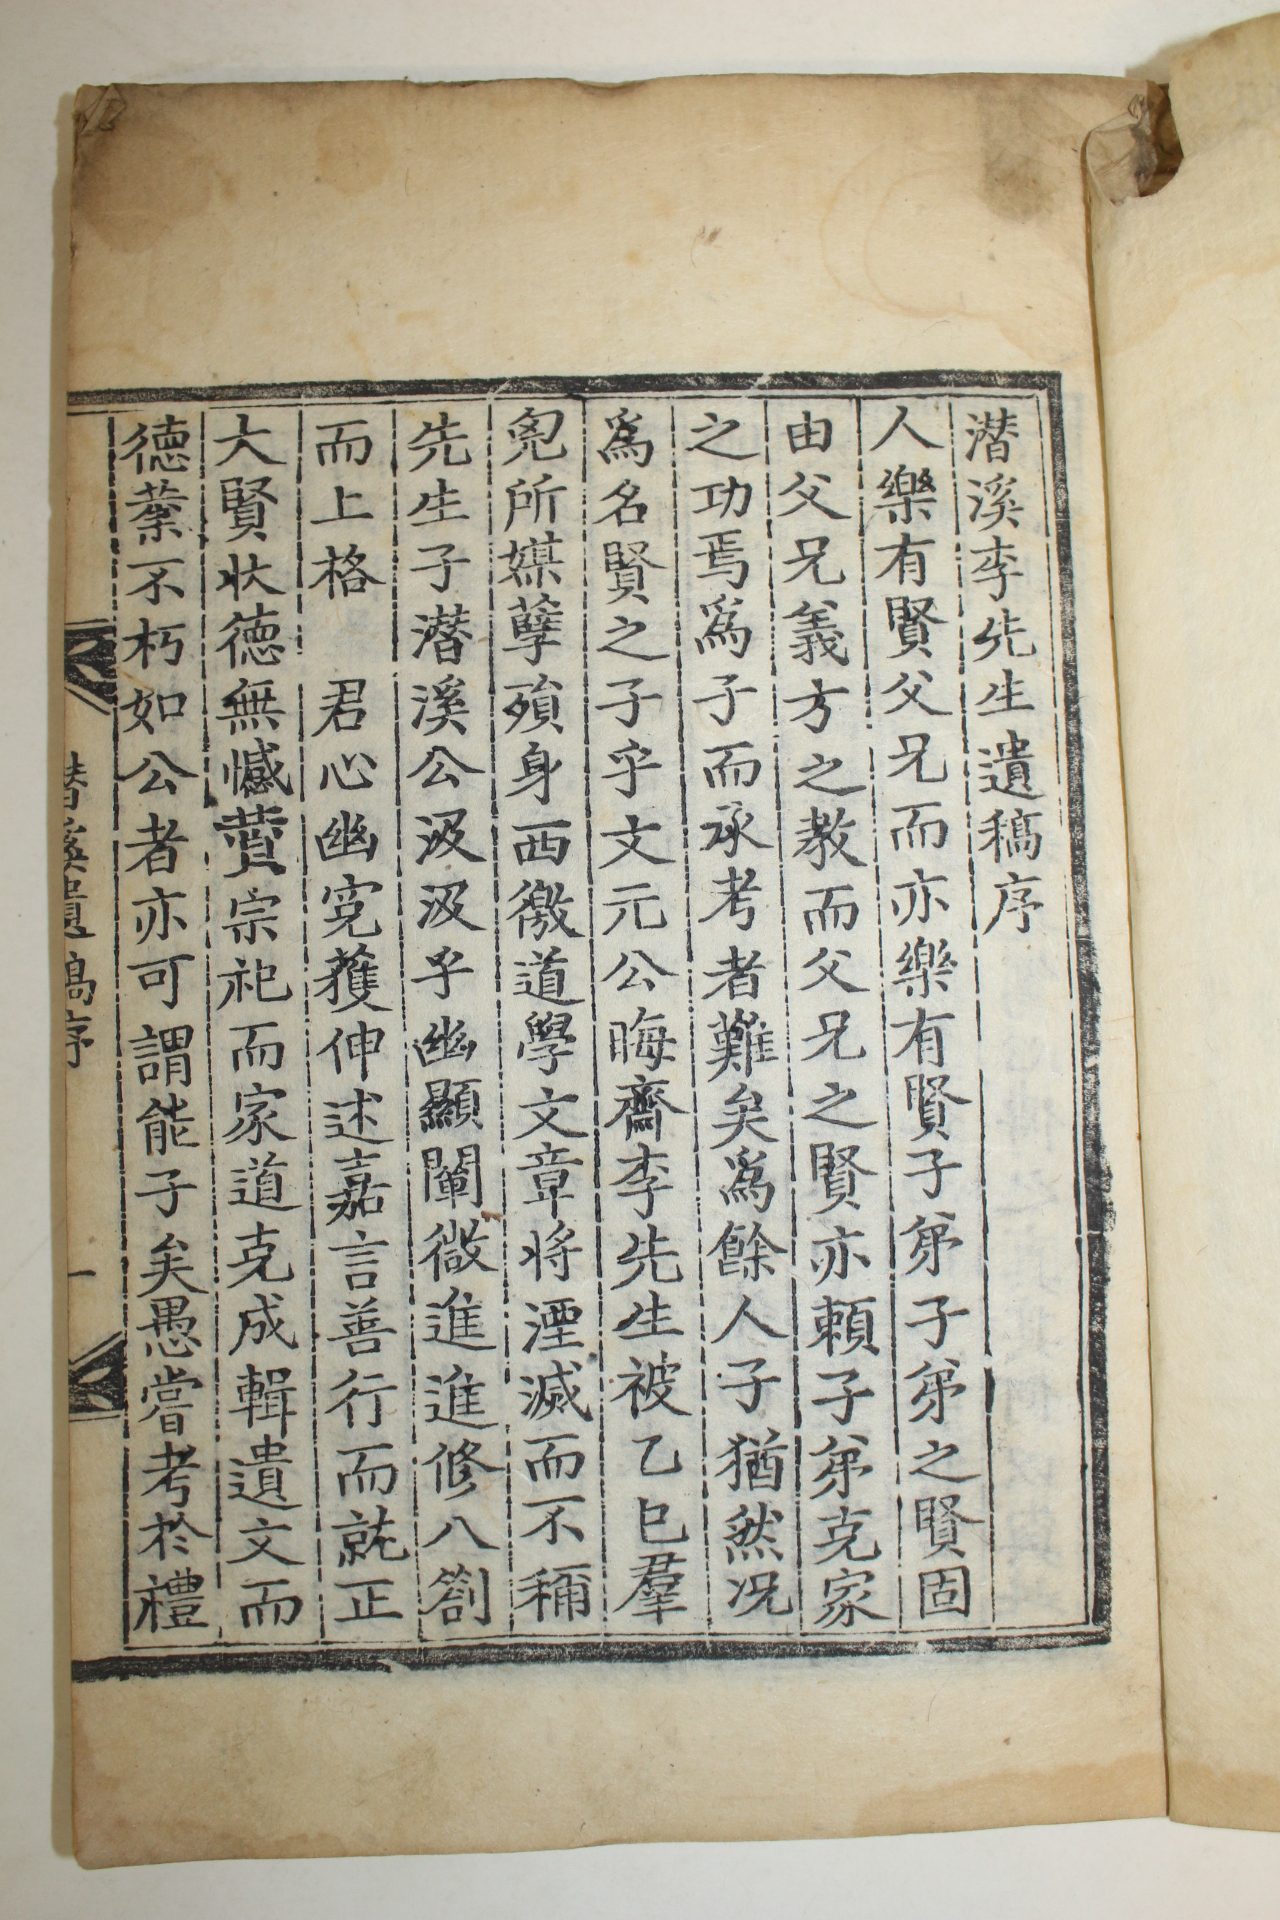 潛溪李先生遺稿序
人樂有賢父兄而亦樂有賢子弟子弟之賢固
由父兄義方之教而父兄之賢亦賴子弟克家
之功焉爲子而承考者難矣爲餘人子猶然况
爲名賢之子乎文元公晦齋李先生被乙巳羣
兇所媒孽殞身西徼道學文章將湮滅而不稱
先生子潛溪公汲汲乎幽顯闡微進進修八劄
而上格　君心幽寃蒦伸述嘉言善行而就正
大賢狀德無憾賁宗祀而家道克成輯遺文而
德業不朽如公者亦可謂能子矣愚嘗考於禮
潛溪遺稿序
一